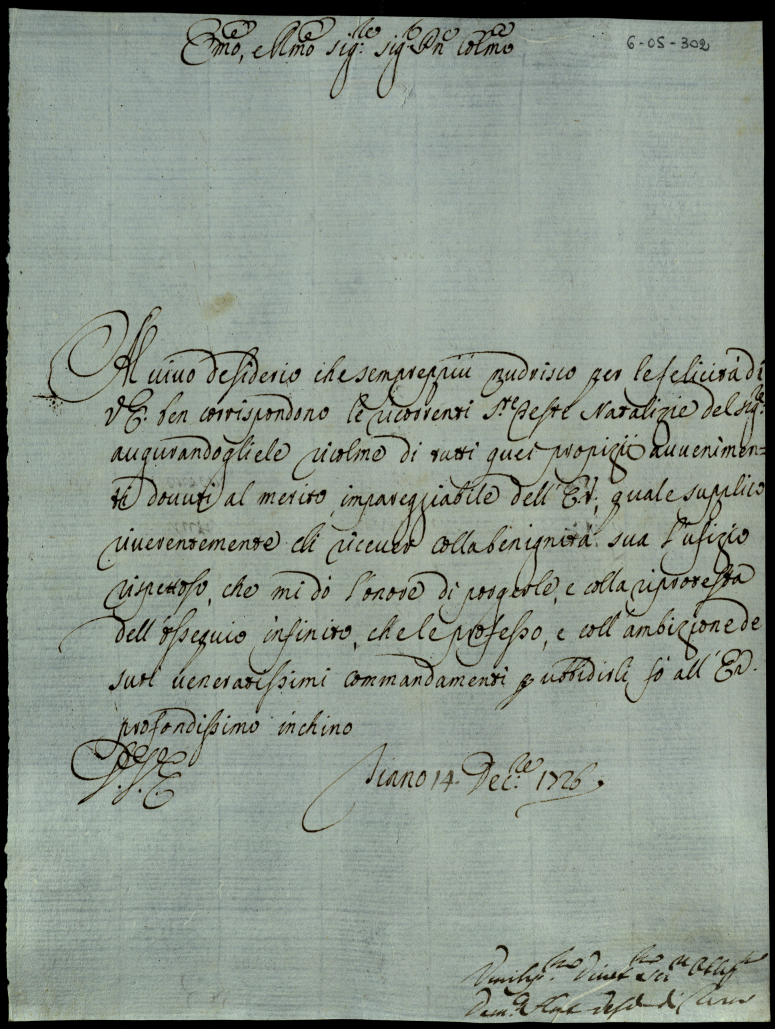 Emo, e Rmo Sig:re Sig:r Pne Colmo
6-05-302
Al viuo desiderio che semprepiù nudrisco per le felicità di
V.E. ben corrispondono le ricorrenti Ste Feste Natalizie del Sig:re
augurandogliele ricolme di tutti quei propizij auuenimen=
ti douuti al merito impareggiabile dell'E.V., quale supplico
riuerentemente di riceuer colla benignità sua l'ufizio
rispettoso, che mi dò l'onore di porgerle, e colla riprotesta
dell'ossequio infinito, che le professo, e coll'ambizione de
suoi veneratissimi commandamenti p ubbidirli fò all'E.V.
profondissimo inchino
D. V. E.
Siano 14 Dec:re 1726.